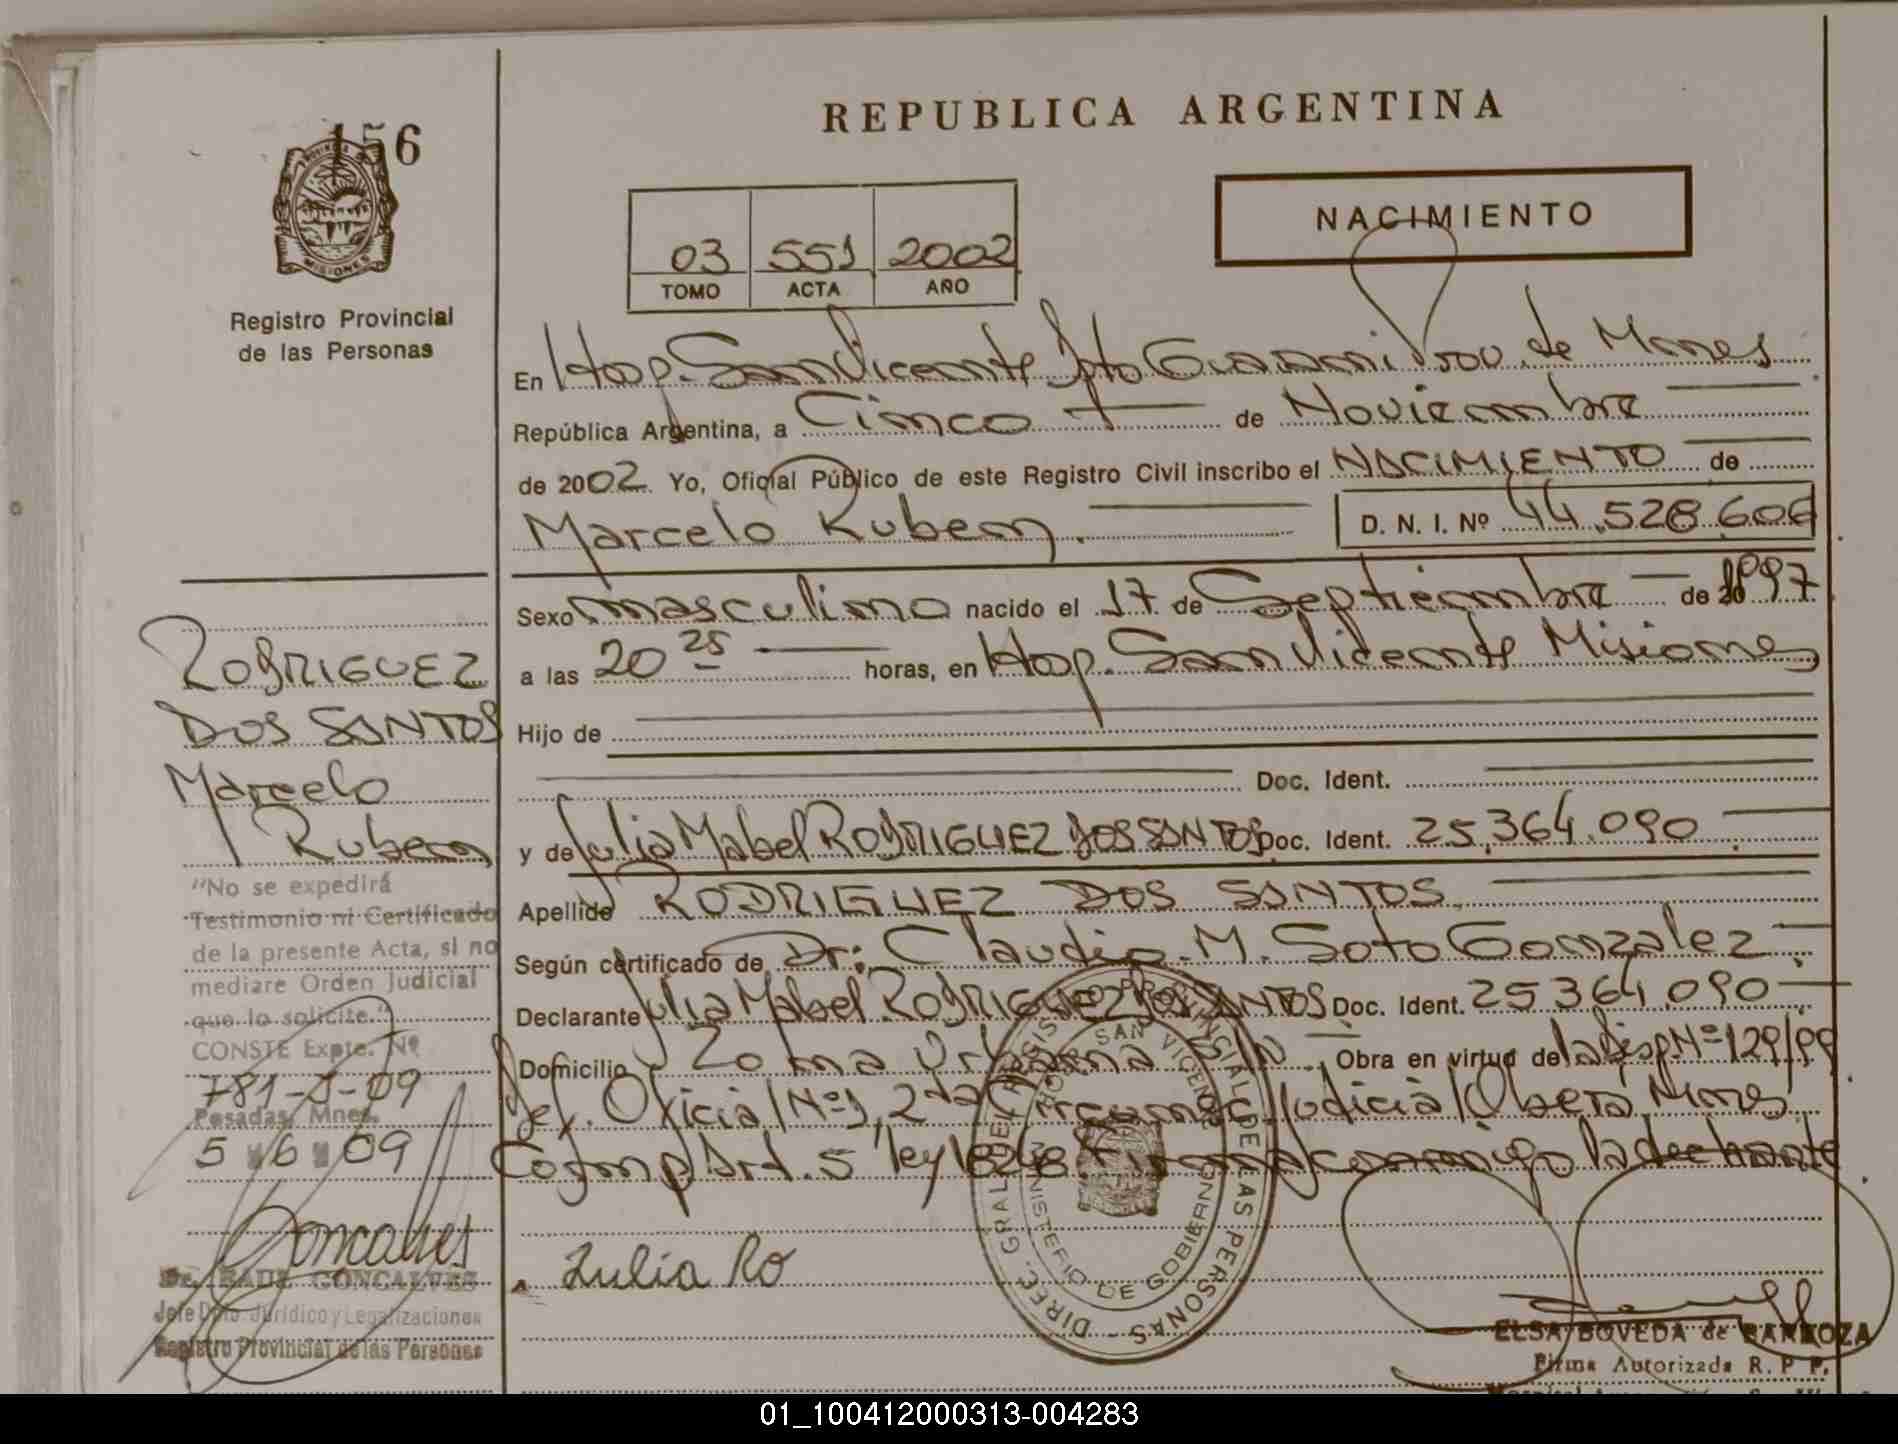 156
PROVINCIA DE
MISIONES
Registro Provincial
de las Personas
REPUBLICA ARGENTINA
NACIMIENTO
03 551 2002
TOMO ACTA AÑO
En Hosp. San Vicente Dpto Guarani Prov. de Mnes
República Argentina, a Cinco de Noviembre
de 2002 Yo, Oficial Público de este Registro Civil inscribo el NACIMIENTO de
Marcelo Ruben. D. N. I. Nº 44.528.606
Sexo masculino nacido el 17 de Septiembre de 1997
a las 20 25 horas, en Hosp. San Vicente Misiones
Hijo de
Doc. Ident.
y de Julia Mabel RODRIGUEZ DOS SANTOS Doc. Ident. 25.364.090
Apellido RODRIGUEZ DOS SANTOS
Según certificado de Dr: Claudio M. Soto Gonzalez
Declarante Julia Mabel RODRIGUEZ DOS SANTOS Doc. Ident. 25364090
Domicilio Zona Urbana S/N Obra en virtud de la Disp Nº 129/99
Def. Oficial Nº1, 2da Circunsc. Judicial Obera Mnes
Art. 5 ley Firma conmigo la declarante
Zulia Ro
DIREC. GRAL. DEL REGISTRO PROVINCIAL DE LAS PERSONAS
HOSP. SAN VICENTE
MINISTERIO DE GOBIERNO
ELSA BOVEDA de BARBOZA
Firma Autorizada R. P. P.
RODRIGUEZ
DOS SANTOS
Marcelo
Ruben
"No se expedirá
Testimonio ni Certificado
de la presente Acta, si no
mediare Orden Judicial
que lo solicite."
CONSTE Expte. Nº
781-J-09
Posadas, Mnes.
5 6 09
Goncalves
Dr. RAUL GONCALVES
Jefe Dpto. Jurídico y Legalizaciones
Registro Provincial de las Personas
01_100412000313-004283